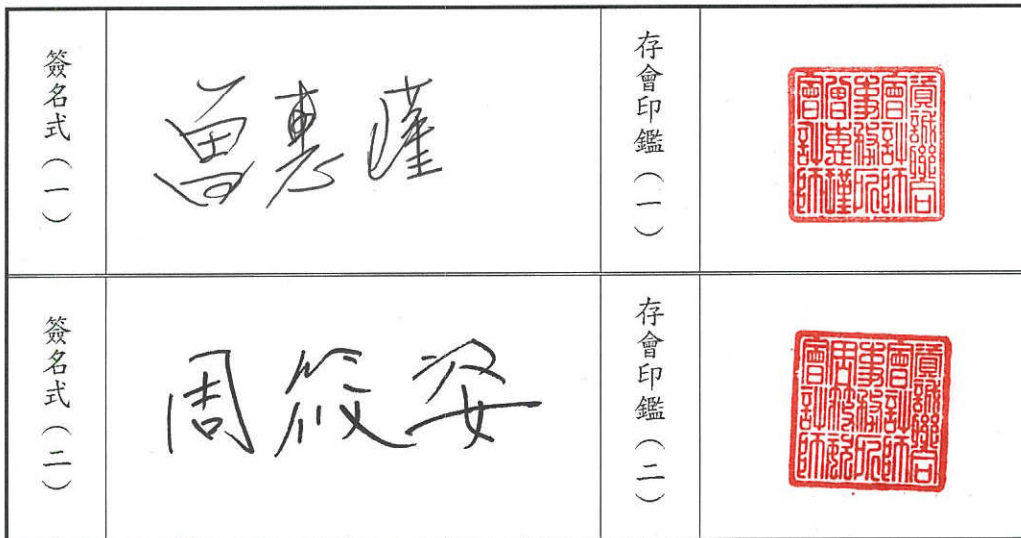 簽名式（一）
曾惠瑾
存會印鑑（一）
資誠聯合
會計師
事務所
曾惠瑾
會計師
簽名式（二）
周筱姿
存會印鑑（二）
資誠聯合
會計師
事務所
周筱姿
會計師